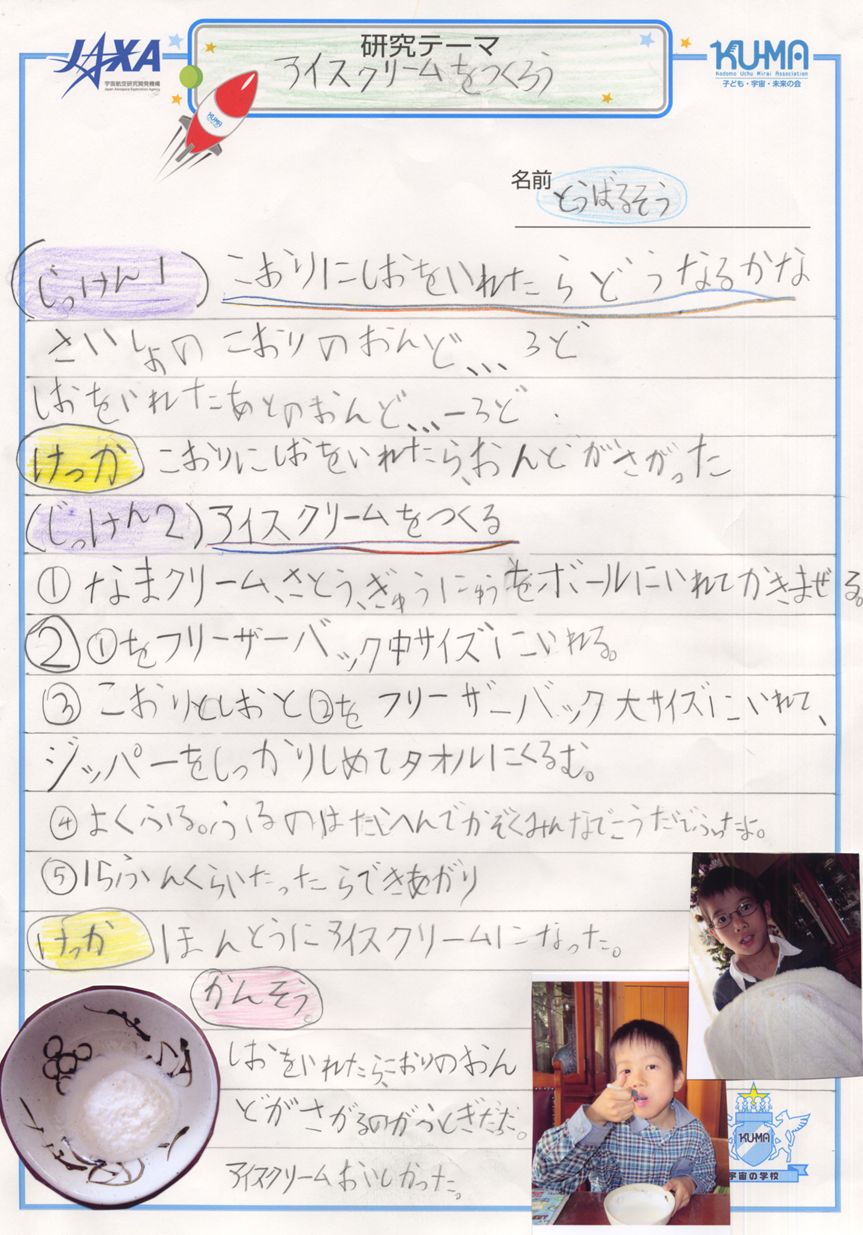 JAXA
宇宙航空研究開発機構
Japan Aerospace Exploration Agency
研究テーマ
アイスクリームをつくろう
KU-MA
Kodomo Uchu Mirai Association
子ども・宇宙・未来の会
KUMA
名前 とうばるそう
(じっけん1) こおりにしおをいれたらどうなるかな
さいしょのこおりのおんど、、、3ど
しおをいれたあとのおんど、、、-3ど.
けっか こおりにしおをいれたら、おんどがさがった
(じっけん2)アイスクリームをつくる
①なまクリーム、さとう、ぎゅうにゅうをボールにいれてかきまぜる。
②①をフリーザーバック中サイズにいれる。
③こおりとしおと②をフリーザーバック大サイズにいれて、
ジッパーをしっかりしめてタオルにくるむ。
④よくふる。ふるのはたいへんでかぞくみんなでこうたいでふったよ。
⑤15ふんくらいたったらできあがり
けっか ほんとうにアイスクリームになった。
かんそう
しおをいれたら、こおりのおん
どがさがるのが
アイスクリームおいしかった。
KU-MA
宇宙の学校